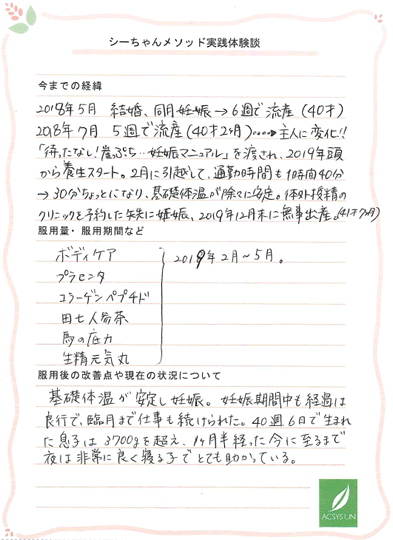 シーちゃんメソッド実践体験談
今までの経緯
2018年5月 結婚、同月妊娠→6週で流産(40才)
2018年7月 5週で流産(40才2ヶ月)‥‥➡主人に変化!!
「待ったなし!崖っぷち‥妊娠マニュアル」を渡され、2019年頭
から養生スタート。2月に引越して、通勤時間も1時間40分
→30分ちょっとになり、基礎体温が徐々に安定。体外授精の
クリニックを予約した矢先に妊娠、2019年12月末に無事出産。(41才7ヶ月)
服用量・服用期間など
ボディケア
プラセンタ
コラーゲンペプチド
田七人参茶
馬の底力
生精元気丸
2019年2月~5月。
服用後の改善点や現在の状況について
基礎体温が安定し妊娠。妊娠期間中も経過は
良行で、臨月まで仕事も続けられた。40週6日で生まれ
た息子は3700gを超え、1ヶ月半経った今に至るまで
夜は非常に良く寝る子でとても助かっている。
ACSYSUN